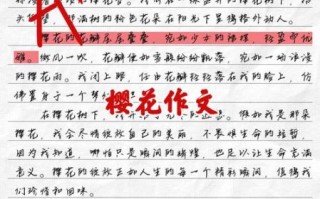 头
满树的粉色花朵在阳光下显得格外动人。
樱花的花瓣层层叠叠，宛如少女的裙摆，轻盈而优
雅。微风一吹，花瓣便如雪般纷纷飘落，宛如一场浪漫
的花雨。我闭上眼，任由花瓣轻轻落在我的脸上，仿
佛置身于一个梦
樱花作文
在樱花树下，
假如我是那朵
樱花，我会尽情绽放自己的美丽，不畏惧生命的短暂，
因为我知道，哪怕只是瞬间的绚烂，也足以让生命充满
意义。樱花的绽放正如人生的每一个精彩瞬间，值得我
们珍惜和回味。